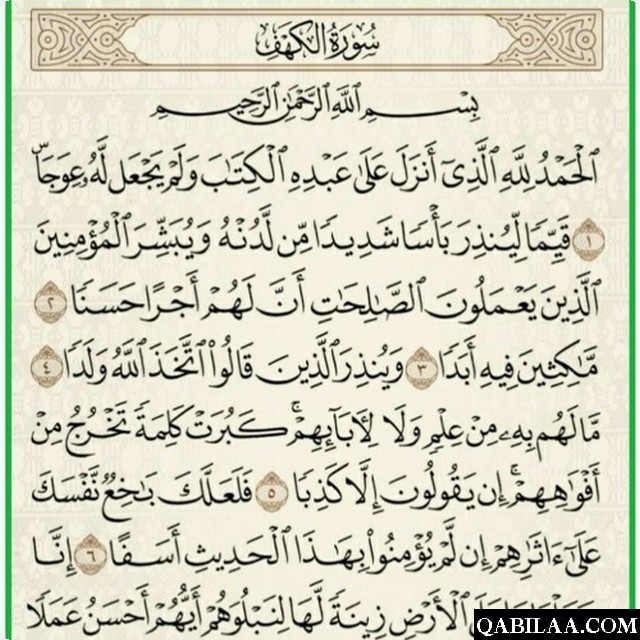 سُورَةُ الْكَهْفِ
بِسْمِ اللَّهِ الرَّحْمَٰنِ الرَّحِيمِ
الْحَمْدُ لِلَّهِ الَّذِي أَنزَلَ عَلَىٰ عَبْدِهِ الْكِتَابَ وَلَمْ يَجْعَل لَّهُ عِوَجًا ۜ
١ قَيِّمًا لِّيُنذِرَ بَأْسًا شَدِيدًا مِّن لَّدُنْهُ وَيُبَشِّرَ الْمُؤْمِنِينَ
الَّذِينَ يَعْمَلُونَ الصَّالِحَاتِ أَنَّ لَهُمْ أَجْرًا حَسَنًا ٢
مَّاكِثِينَ فِيهِ أَبَدًا ٣ وَيُنذِرَ الَّذِينَ قَالُوا اتَّخَذَ اللَّهُ وَلَدًا ٤
مَّا لَهُم بِهِ مِنْ عِلْمٍ وَلَا لِآبَائِهِمْ ۚ كَبُرَتْ كَلِمَةً تَخْرُجُ مِنْ
أَفْوَاهِهِمْ ۚ إِن يَقُولُونَ إِلَّا كَذِبًا ٥ فَلَعَلَّكَ بَاخِعٌ نَّفْسَكَ
عَلَىٰ آثَارِهِمْ إِن لَّمْ يُؤْمِنُوا بِهَٰذَا الْحَدِيثِ أَسَفًا ٦ إِنَّا
الْأَرْضِ زِينَةً لَّهَا لِنَبْلُوَهُمْ أَيُّهُمْ أَحْسَنُ عَمَلًا
QABILAA.COM